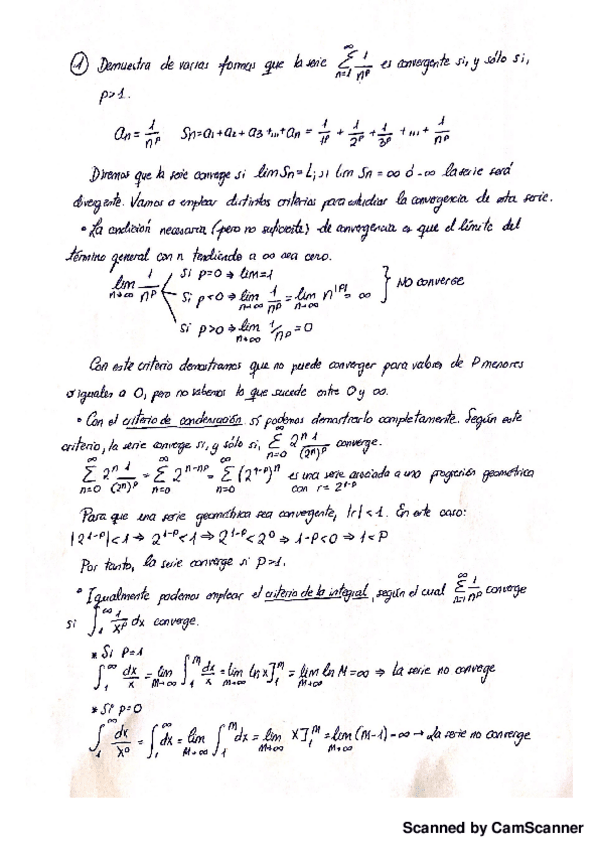 ① Demuestra de varias formas que la serie ∑_{n=1}^{∞} 1/n^p es convergente si, y sólo si,
p>1.
a_n = 1/n^p   S_n = a_1+a_2+a_3+...+a_n = 1/1^p + 1/2^p + 1/3^p + ... + 1/n^p
Diremos que la serie converge si lim S_n = L; si lim S_n = ∞ ó -∞ la serie será
divergente. Vamos a emplear distintos criterios para estudiar la convergencia de esta serie.
• La condición necesaria (pero no suficiente) de convergencia es que el límite del
término general con n tendiendo a ∞ sea cero.
Si p=0 ⇒ lim=1
lim_{n→∞} 1/n^p   Si p<0 ⇒ lim_{n→∞} 1/n^p = lim_{n→∞} n^{|p|} = ∞ } NO converge
Si p>0 ⇒ lim_{n→∞} 1/n^p = 0
Con este criterio demostramos que no puede converger para valores de P menores
o iguales a 0, pero no sabemos lo que sucede entre 0 y ∞.
• Con el criterio de condensación sí podemos demostrarlo completamente. Según este
criterio, la serie converge si, y sólo si, ∑_{n=0}^{∞} 2^n 1/(2^n)^p converge.
∑_{n=0}^{∞} 2^n 1/(2^n)^p = ∑_{n=0}^{∞} 2^{n-np} = ∑_{n=0}^{∞} (2^{1-p})^n es una serie asociada a una progresión geométrica
con r = 2^{1-p}
Para que una serie geométrica sea convergente, |r|<1. En este caso:
|2^{1-p}|<1 ⇒ 2^{1-p}<1 ⇒ 2^{1-p}<2^0 ⇒ 1-p<0 ⇒ 1<p
Por tanto, la serie converge si p>1.
• Igualmente podemos emplear el criterio de la integral, según el cual ∑_{n=1}^{∞} 1/n^p converge
si ∫_1^∞ 1/x^p dx converge.
* Si p=1
∫_1^∞ dx/x = lim_{M→∞} ∫_1^M dx/x = lim_{M→∞} ln x]_1^M = lim_{M→∞} ln M = ∞ ⇒ la serie no converge
* Si p=0
∫_1^∞ dx/x^0 = ∫_1^∞ dx = lim_{M→∞} ∫_1^M dx = lim_{M→∞} x]_1^M = lim_{M→∞} (M-1) = ∞ → La serie no converge
Scanned by CamScanner